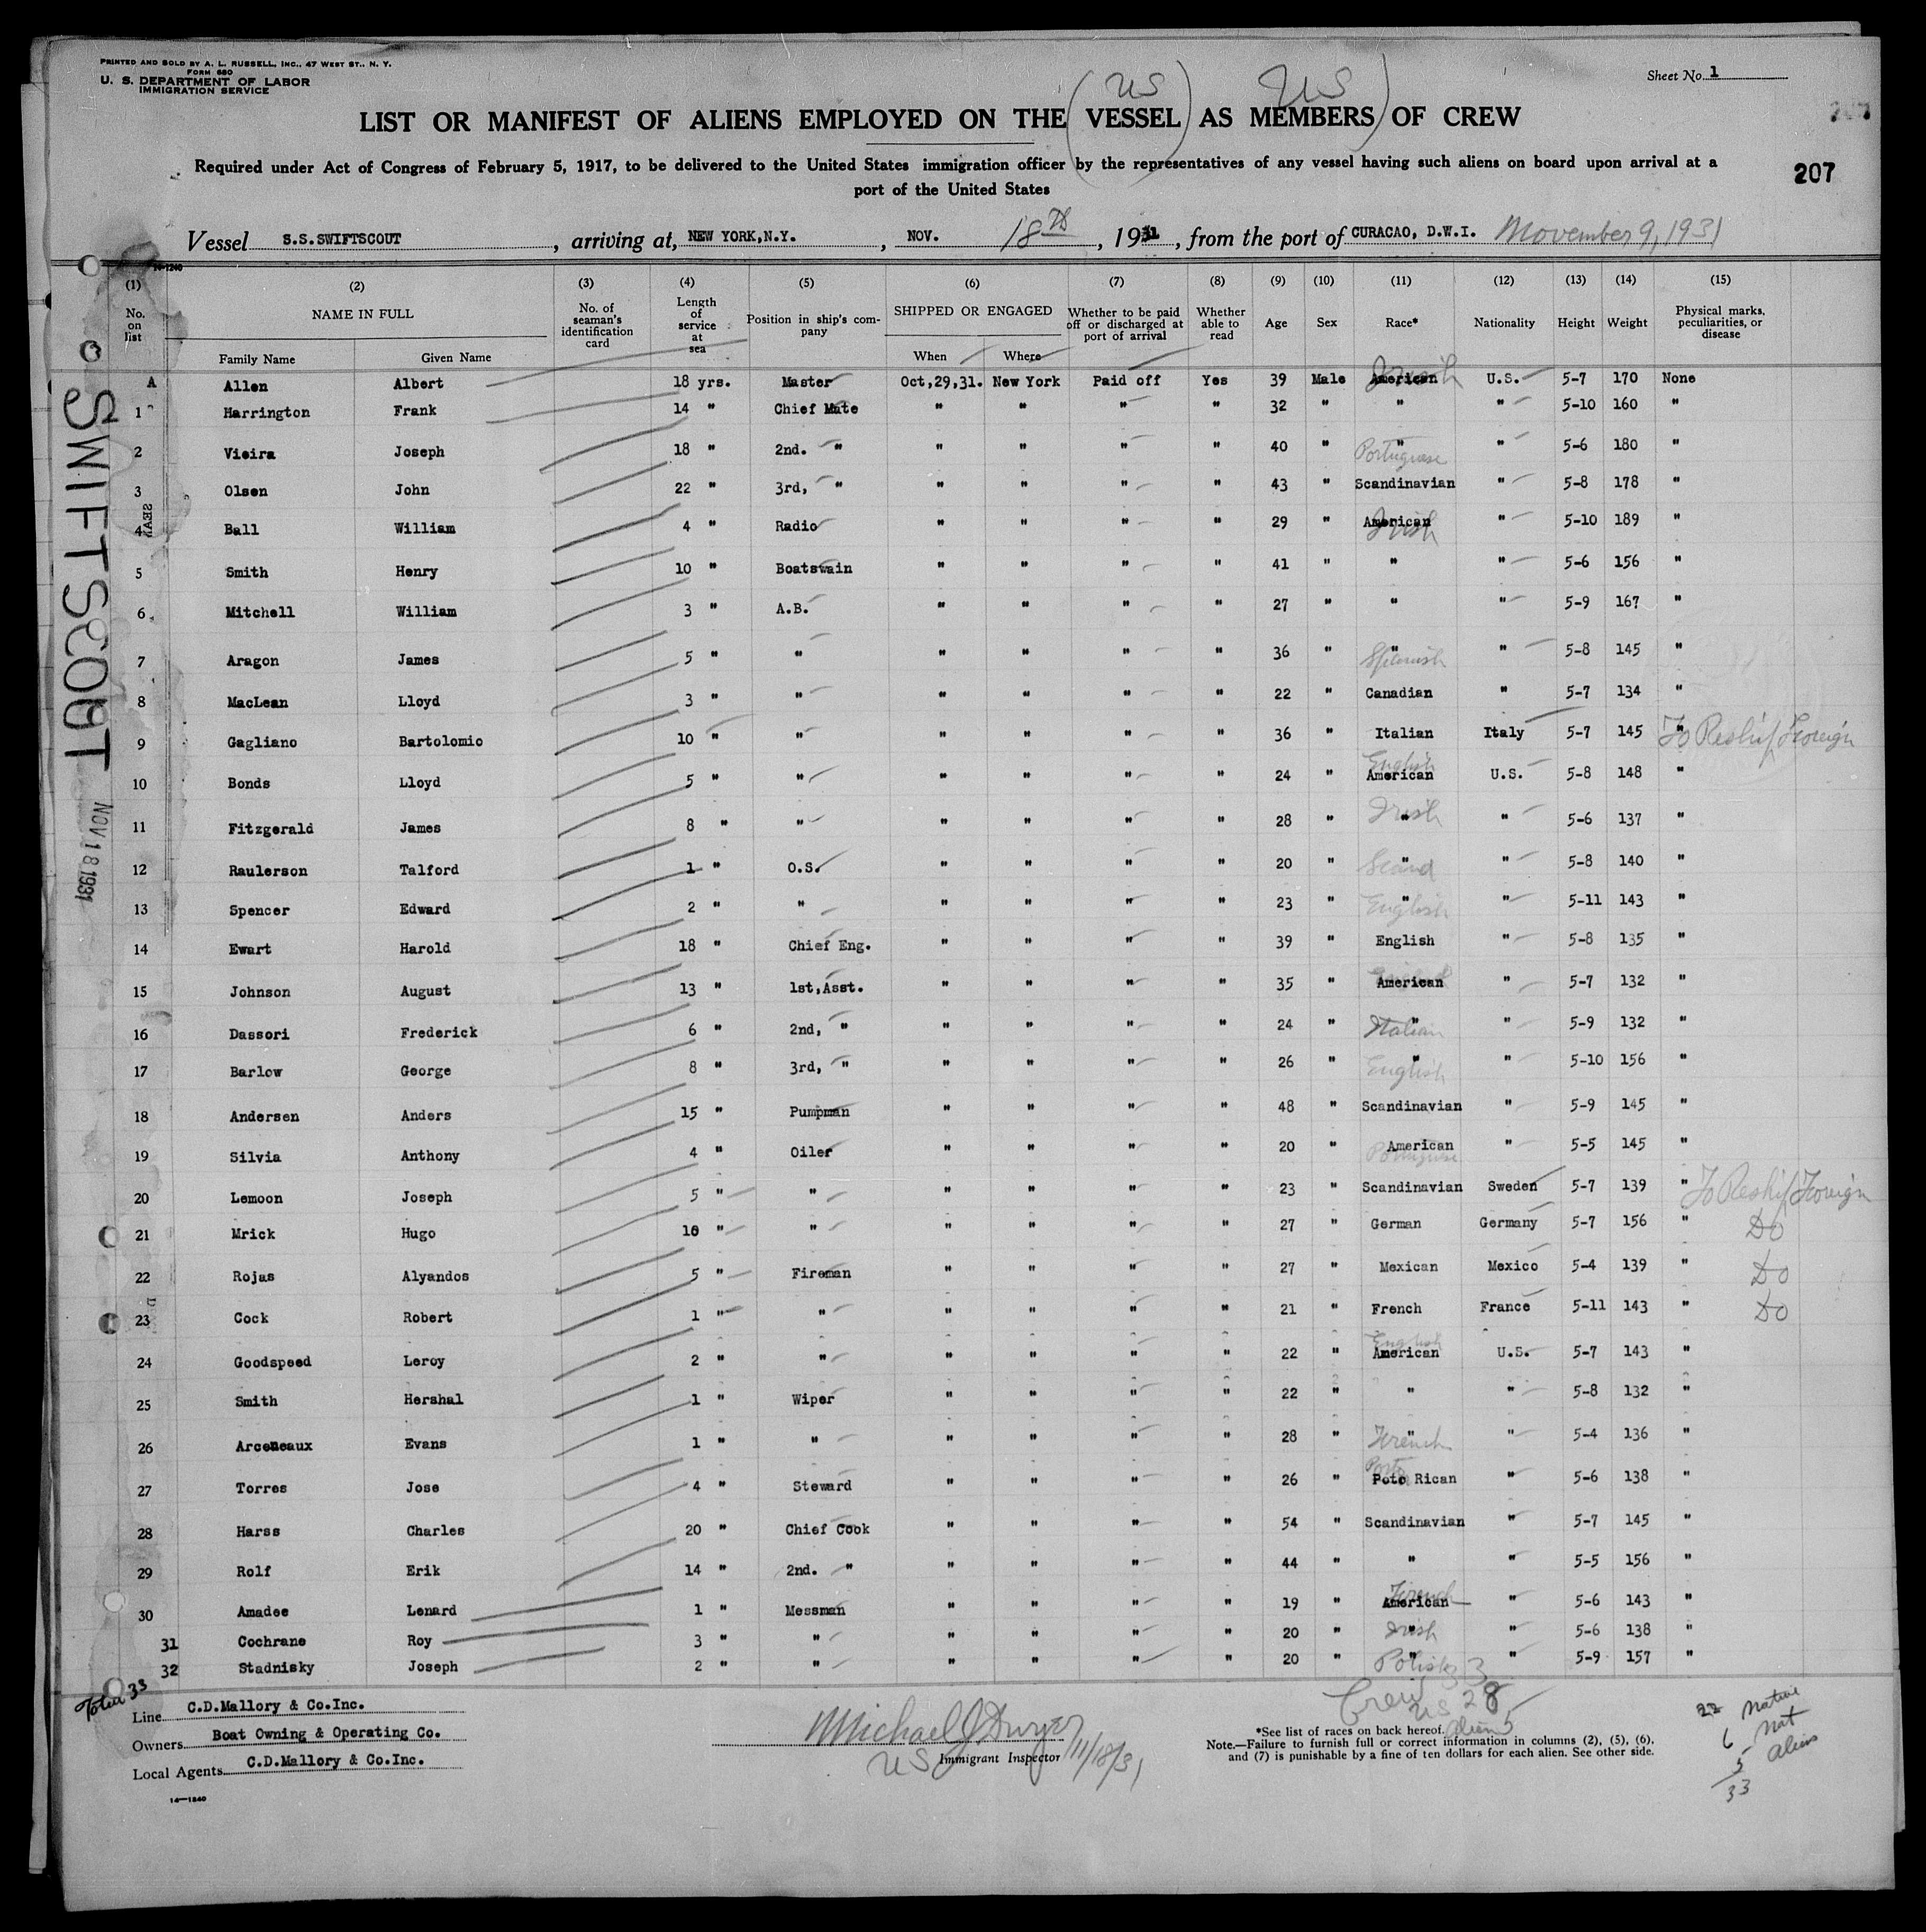 PRINTED AND SOLD BY A. L. RUSSELL, INC., 47 WEST ST., N. Y.
FORM 680
U. S. DEPARTMENT OF LABOR
IMMIGRATION SERVICE
Sheet No. 1
US US
LIST OR MANIFEST OF ALIENS EMPLOYED ON THE (VESSEL) AS MEMBERS) OF CREW
Required under Act of Congress of February 5, 1917, to be delivered to the United States immigration officer by the representatives of any vessel having such aliens on board upon arrival at a
port of the United States
207
Vessel S.S.SWIFTSCOUT, arriving at, NEW YORK,N.Y., NOV. 18th, 1931, from the port of CURACAO, D.W.I. November 9, 1931
14-1240
(1) (2) (3) (4) (5) (6) (7) (8) (9) (10) (11) (12) (13) (14) (15)
No. on list NAME IN FULL Family Name Given Name No. of seaman's identification card Length of service at sea Position in ship's company SHIPPED OR ENGAGED When Where Whether to be paid off or discharged at port of arrival Whether able to read Age Sex Race* Nationality Height Weight Physical marks, peculiarities, or disease
A Allen Albert 18 yrs. Master Oct,29,31. New York Paid off Yes 39 Male American U.S. 5-7 170 None
1 Harrington Frank 14 " Chief Mate " " " " 32 " " " 5-10 160 "
2 Vieira Joseph 18 " 2nd. " " " " " 40 " " Portuguese " 5-6 180 "
3 Olsen John 22 " 3rd, " " " " " 43 " Scandinavian " 5-8 178 "
4 Ball William 4 " Radio " " " " 29 " American Irish " 5-10 189 "
5 Smith Henry 10 " Boatswain " " " " 41 " " " 5-6 156 "
6 Mitchell William 3 " A.B. " " " " 27 " " " 5-9 167 "
7 Aragon James 5 " " " " " " 36 " " Spanish " 5-8 145 "
8 MacLean Lloyd 3 " " " " " " 22 " Canadian " 5-7 134 "
9 Gagliano Bartolomio 10 " " " " " " 36 " Italian Italy 5-7 145 " To Reship Foreign
10 Bonds Lloyd 5 " " " " " " 24 " English American U.S. 5-8 148 "
11 Fitzgerald James 8 " " " " " " 28 " Irish " " 5-6 137 "
12 Raulerson Talford 1 " O.S. " " " " 20 " Scand " " 5-8 140 "
13 Spencer Edward 2 " " " " " " 23 " English " " 5-11 143 "
14 Ewart Harold 18 " Chief Eng. " " " " 39 " English " 5-8 135 "
15 Johnson August 13 " 1st,Asst. " " " " 35 " American " 5-7 132 "
16 Dassori Frederick 6 " 2nd, " " " " " 24 " Italian " " 5-9 132 "
17 Barlow George 8 " 3rd, " " " " " 26 " English " " 5-10 156 "
18 Andersen Anders 15 " Pumpman " " " " 48 " Scandinavian " 5-9 145 "
19 Silvia Anthony 4 " Oiler " " " " 20 " American Portuguese " 5-5 145 "
20 Lemoon Joseph 5 " " " " " " 23 " Scandinavian Sweden 5-7 139 " To Reship Foreign
21 Mrick Hugo 10 " " " " " " 27 " German Germany 5-7 156 " Do
22 Rojas Alyandos 5 " Fireman " " " " 27 " Mexican Mexico 5-4 139 " Do
23 Cock Robert 1 " " " " " " 21 " French France 5-11 143 " Do
24 Goodspeed Leroy 2 " " " " " " 22 " English American U.S. 5-7 143 "
25 Smith Hershal 1 " Wiper " " " " 22 " " " 5-8 132 "
26 Arceneaux Evans 1 " " " " " " 28 " French " " 5-4 136 "
27 Torres Jose 4 " Steward " " " " 26 " Porto Poto Rican " 5-6 138 "
28 Harss Charles 20 " Chief Cook " " " " 54 " Scandinavian " 5-7 145 "
29 Rolf Erik 14 " 2nd. " " " " " 44 " " " 5-5 156 "
30 Amadee Lenard 1 " Messman " " " " 19 " French American " 5-6 143 "
31 Cochrane Roy 3 " " " " " " 20 " Irish " " 5-6 138 "
32 Stadnisky Joseph 2 " " " " " " 20 " Polish " " 5-9 157 "
SWIFTSCOUT
NOV 18 1931
Total 33
Line C.D.Mallory & Co.Inc.
Owners Boat Owning & Operating Co.
Local Agents C.D.Mallory & Co.Inc.
14-1240
Michael J Dwyer
US Immigrant Inspector 11/18/31
Crew 33
US 28
Alien 5
*See list of races on back hereof.
Note.—Failure to furnish full or correct information in columns (2), (5), (6),
and (7) is punishable by a fine of ten dollars for each alien. See other side.
22 Native
6 Nat
5 Aliens
33